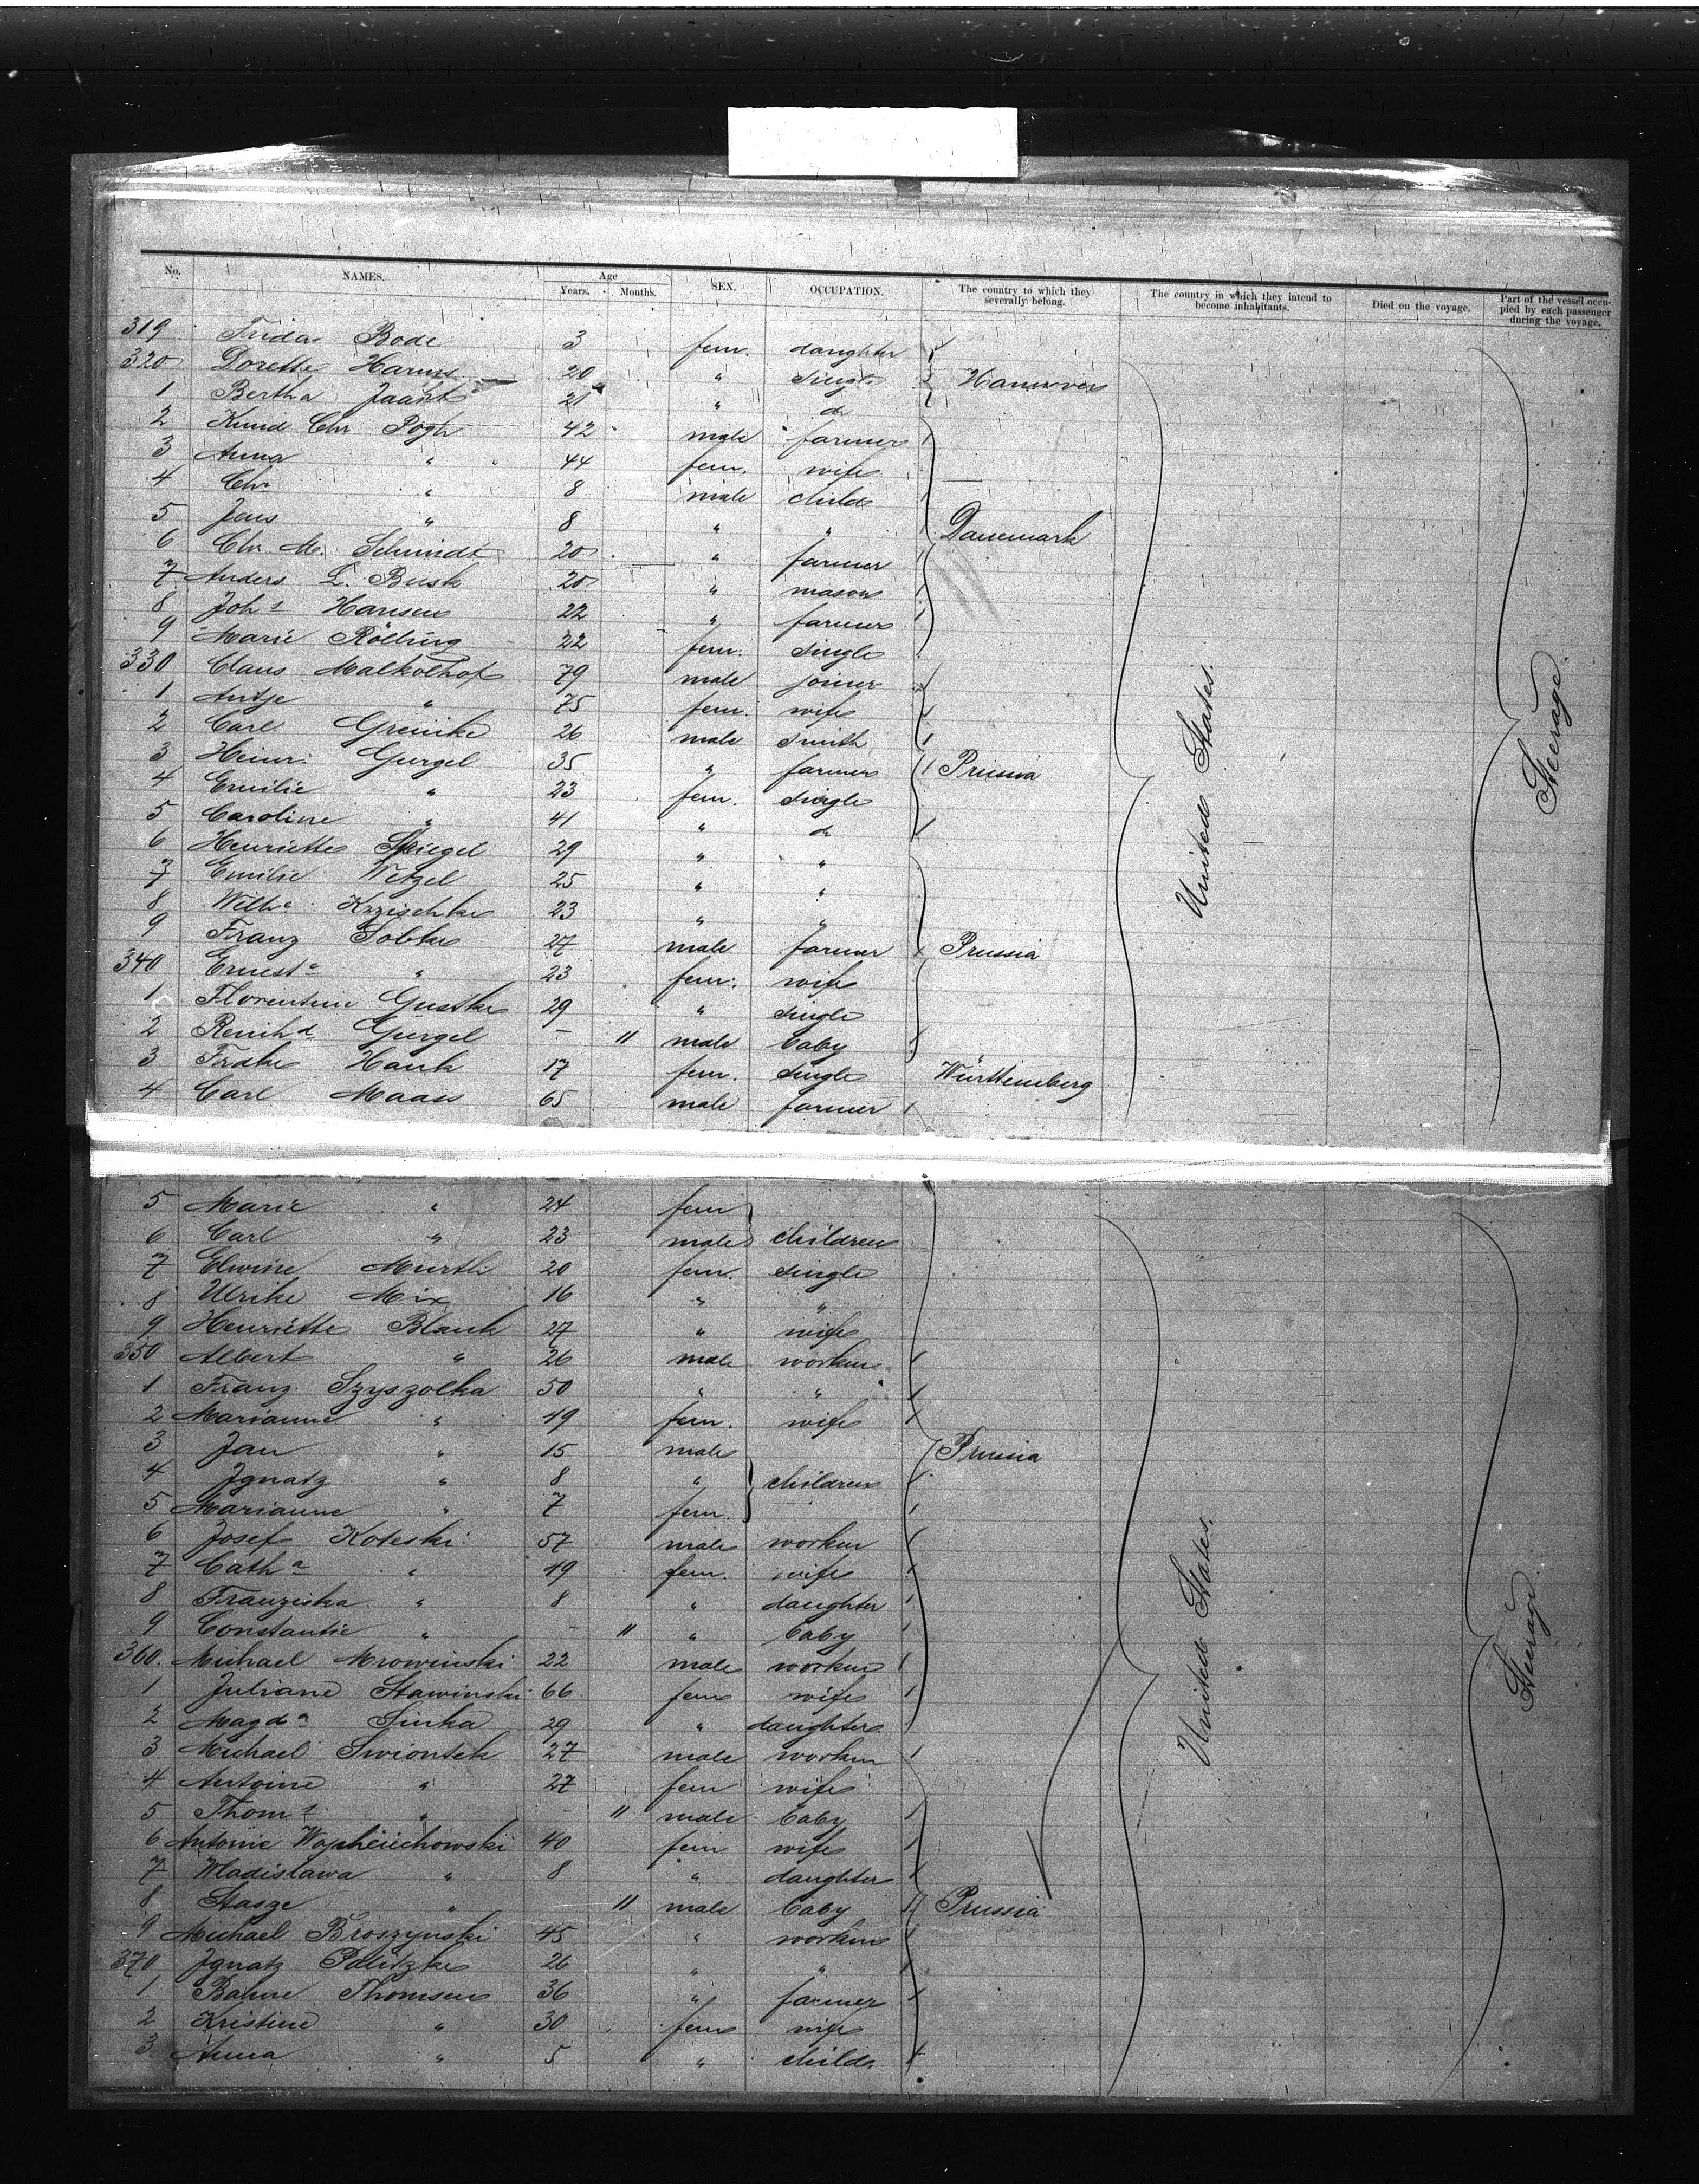 No. NAMES. Age Years. Months. SEX. OCCUPATION. The country to which they severally belong. The country in which they intend to become inhabitants. Died on the voyage. Part of the vessel occupied by each passenger during the voyage.
319 Frida Bode 3 fem. daughter
320 Dorette Harms 20 " single Hannover
1 Bertha 21 " do
2 Knud Chr Pogh 42 male farmer
3 Anna " 44 fem. wife
4 Chr " 8 male child
5 Jens " 8 " " Danemark
6 Chr. M. Schmidt 20 " farmer
7 Anders L. Busk 20 " mason
8 Johs Hansen 22 " farmer
9 Marie 22 fem. single
330 Claus Malkolhof 79 male joiner
1 Antje " 75 fem. wife
2 Carl 26 male smith
3 Heinr. Gurgel 35 " farmer Prussia
4 Emilie " 23 fem. single
5 Caroline " 41 " do
6 Henriette Spiegel 29 " "
7 Emilie Wetzel 25 " "
8 Wilhe Krzischke 23 " "
9 Franz Sobtke 27 male farmer Prussia
340 Erneste " 23 fem. wife
1 Florentine Gustke 29 " single
2 Reinhd Gurgel - 11 male baby
3 Frdke Hauk 17 fem. single Württemberg
4 Carl Maass 65 male farmer
United States.
Steerage.
5 Marie " 24 fem
6 Carl " 23 male children
7 Elwine 20 fem. single
8 Ulrike Mix 16 " "
9 Henriette Blank 27 " wife
350 Albert " 26 male worker
1 Franz Szyszolka 50 " "
2 Marianne " 49 fem. wife
3 Jan " 15 male Prussia
4 Ignatz " 8 " children
5 Marianne " 7 fem.
6 Josef Koteski 57 male worker
7 Catha " 49 fem. wife
8 Franziska " 8 " daughter
9 Constantie " - 11 " baby
360. Michael Mrowinski 22 male worker
1 Juliane Stawinski 66 fem wife
2 Magda Sinka 29 " daughter
3 Michael Swiontek 27 male worker
4 Antoine " 27 fem wife
5 Thoms " - 11 male baby
6 Antonie 40 fem wife
7 Wladislawa " 8 " daughter
8 Stasze " 11 male baby Prussia
9 Michael Broszynski 45 " worker
370 Ignatz Palitzke 26 " "
1 Bahne Thomsen 36 " farmer
2 Kristine " 30 fem wife
3. Anna " 5 " child.
United States.
Steerage